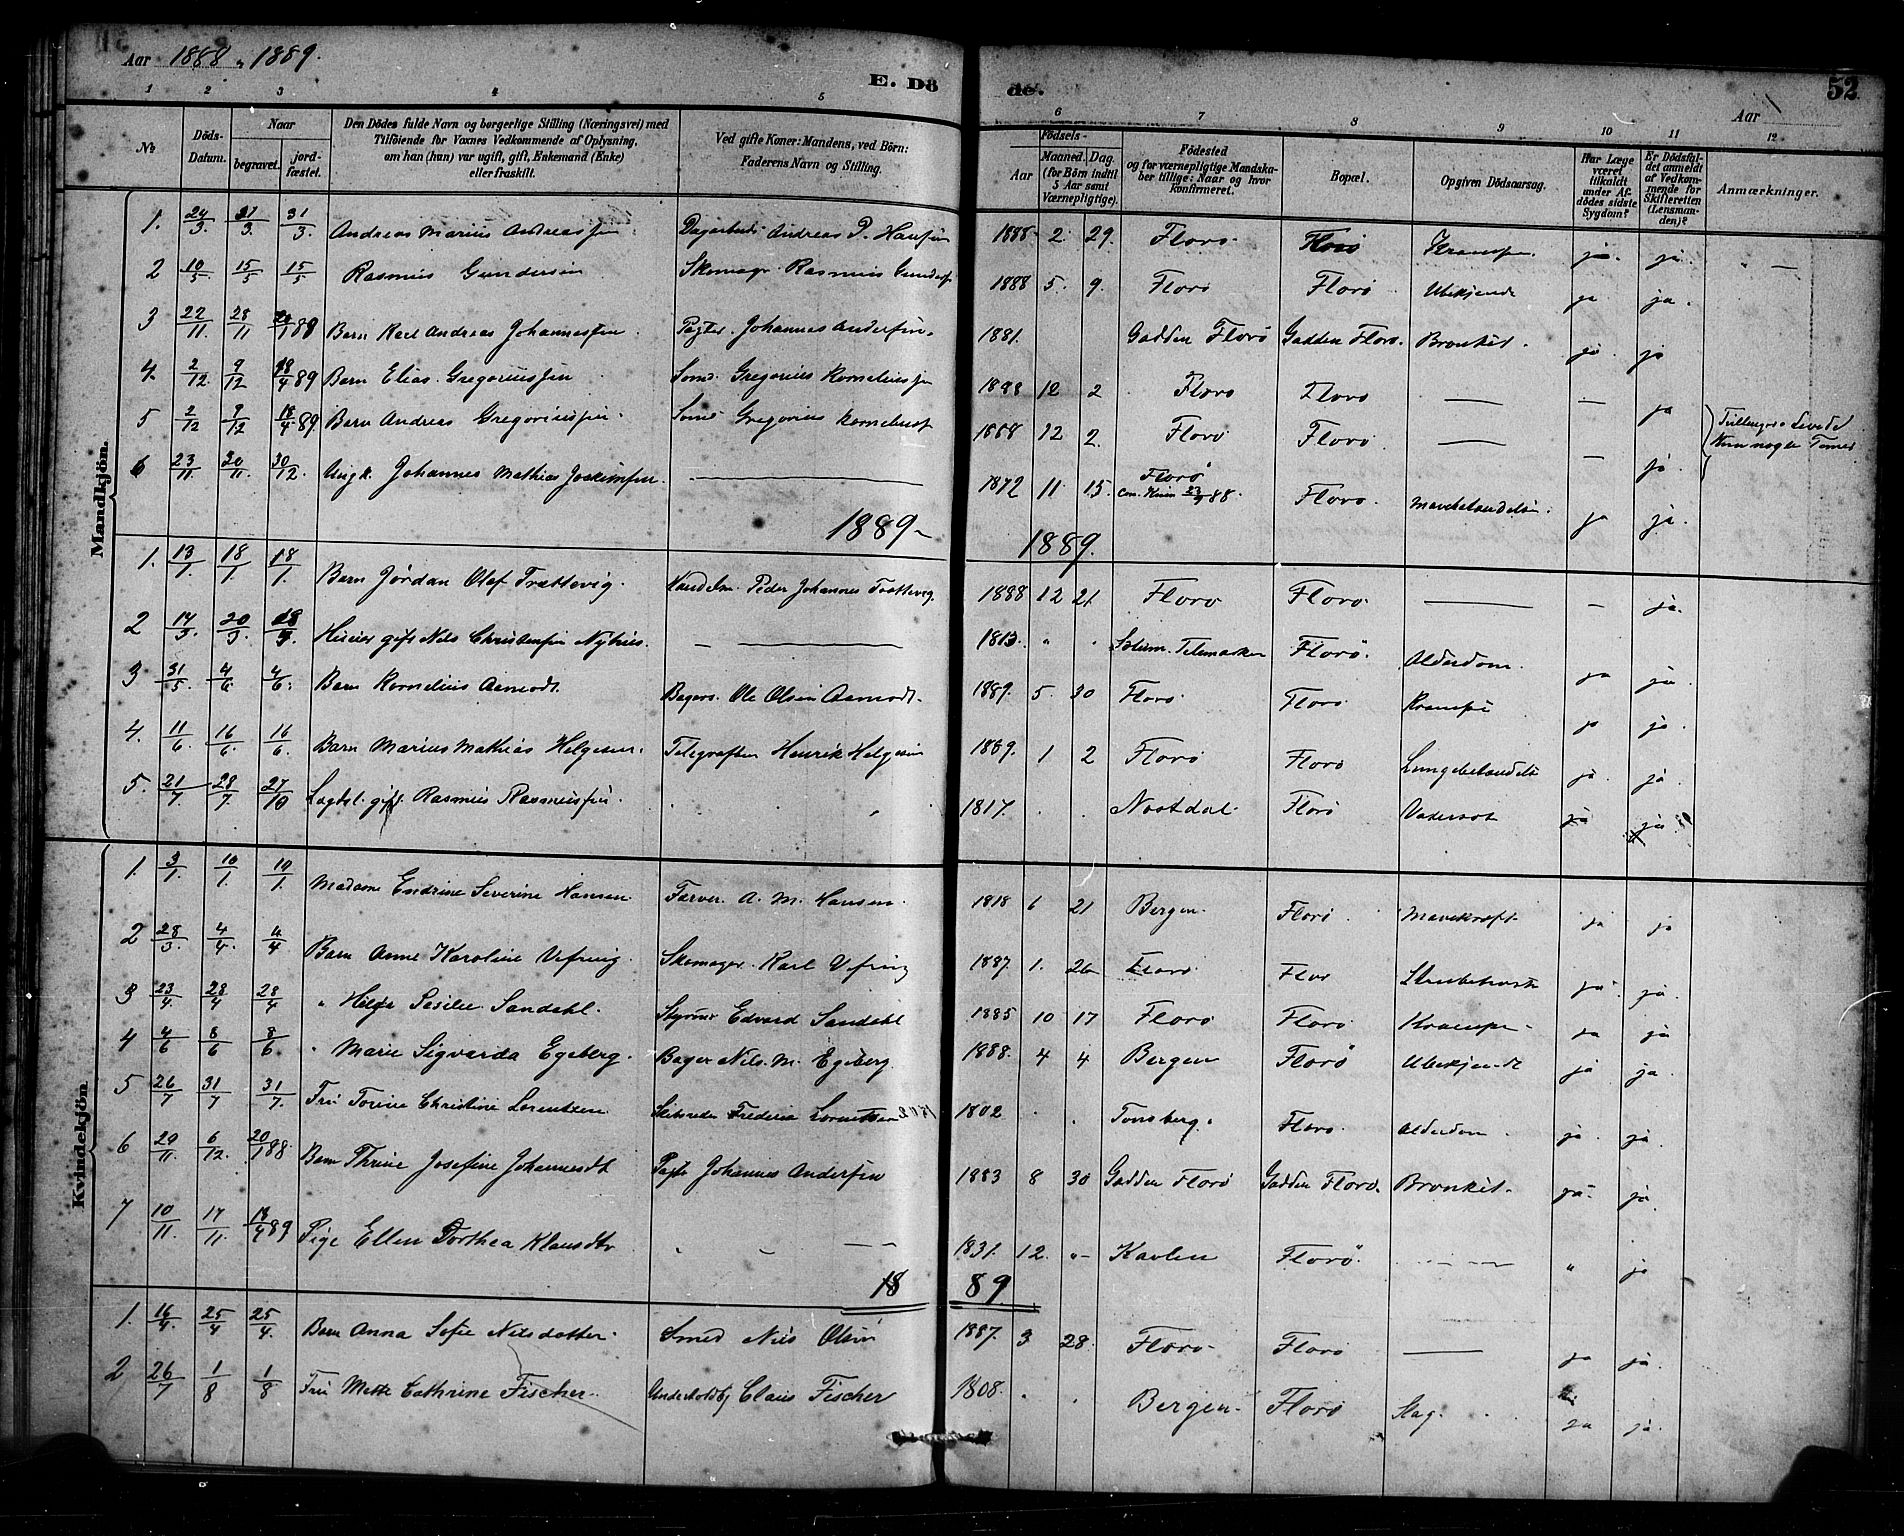 Aar 1888 „ 1889.
E. Dö de. Aar 52.
1 2 3 4 5 6 7 8 9 10 11 12
No
Döds-Datum.
Naar begravet. jordfæstet.
Den Dödes fulde Navn og borgerlige Stilling (Næringsvei) med Tilföiende for Voxnes Vedkommende af Oplysning, om han (hun) var ugift, gift, Enkemand (Enke) eller fraskilt.
Ved gifte Koner: Mandens, ved Börn: Faderens Navn og Stilling.
Födsels-
Aar Maaned. Dag. (for Börn indtil 5 Aar samt Værnepligtige).
Födested og for værnepligtige Mandskaber tillige: Naar og hvor konfirmeret.
Bopæl.
Opgiven Dödsaarsag.
Har Læge været tilkaldt under Afdödes sidste Sygdom?
Er Dödsfaldet anmeldt af Vedkommende for Skifteretten (Lensmanden)?
Anmærkninger.
Mandkjön.
1. 24/3. 31/3. 31/3. Andreas Marius Andreassen. Dagarbeid. Andreas P. Hansen 1888 2. 29. Florö. Florö Krampe. ja. ja. „ —
2 10/5 15/5 15/5 Rasmus Gundersen Skomagr. Rasmus Gunders. 1888 5. 9. Florö Florö Ubekjendt ja ja.
3 22/11 28/11 /188 Barn Karl Andreas Johannessen. Pagter. Johannes Andersen. 1881. Gadden Florö Gadden Florö. Bronkit. ja. ja
4. 2/12. 9/12 18/4 89 Barn Elias Gregoriussen Smed. Gregorius Korneliussen 1888 12 2 Florö Florö — — ja
5 2/12 9/12 18/4 89. Barn Andreas Gregoriussen. Smed Gregorius Korneliuss. 1888 12 2. Florö Florö — — ja. Tvillinger. Levede kun nogle Timer
6 23/11 30/11 30/12. Ungk. Johannes Mathias Joakimsen. — 1872 11. 15. Florö Con. Kinn 23/9 88. Florö. Mavebetændelse. ja ja.
1889 – 1889.
1. 13/1. 18/1. 18/1. Barn Jørdan Olaf Trættevig. Handelm. Peder Johannes Trættevig. 1888 12 21. Florö Florö. — – ja.
2 14/3. 20/3. Huseier gift Nils Christensen Nyhus. — 1813. „ . Solum. Telemarken Florö. Alderdom. ja ja.
3 31/5. 4/6. 4/6. Barn Kornelius Aamodt. Bagers. Ole Olsen Aamodt. 1889. 5. 30 Florö Florö Krampe ja ja.
4. 11/6. 16/6. 16/6. Barn Marius Mathias Helgesen. Telegrafbn Henrik Helgesen 1889. 1 2 Florö Florö Lungebetændelse ja. ja.
5. 21/7 28/7 27/10 Logdsl. gift. Rasmus Rasmussen. „ 1817. . . Naastdal. Florö Vatersot ja ja.
Kvindekjön
1. 3/1. 10/1. 10/1. Madame Endrine Severine Hansen Farver. A. M. Hansen. 1818 6 21 Bergen. Florö. Mavekræft. ja ja
2 28/3. 4/4. 4/4 Barn Anne Karoline Vefring. Skomager. Karl Vefring 1887. 1. 26 Florö Flor Strubehoste ja. ja.
3 23/4. 28/4 28/4 „ Helga Sesilie Sandahl. Styrmd Edvard Sandahl 1885 10 17 Florö Florö Krampe. ja ja
4 4/6 8/6 8/6 „ Marie Sigvarda Egeberg. Bager Nils. M. Egeberg 1888. 4 4 Bergen Florö Ubekjendt ja ja.
5 26/7 31/7 31/7. Fru Torine Christine Lorentzen Frederik Lorentzen 1802. . . Tönsberg. Florö. Alderdom. ja. ja.
6 29/11. 6/12. 20/1 88. Barn Thrine Josefine Johannesdt Pagtr Johannes Andersen 1883 8 30 Gadden Florö Gadden Florö. Bronkit. ja. ja.
7 10/11. 17/11. 18/4 89 Pige Ellen Dorthea Klausdtr „ – — 1831. 12. „– Kavlen Florö. — „ ja
18 89.
1. 16/4. 25/4 25/4. Barn Anna Sofie Nilsdatter. Smed Nils Olsen 1887. 3 28. Florö. Florö — ja ja.
2 26/7 1/8 1/8 Fru Mette Cathrine Fischer. Underfoldby Claus Fischer 1808. . . Bergen. Florö Slag. ja ja.